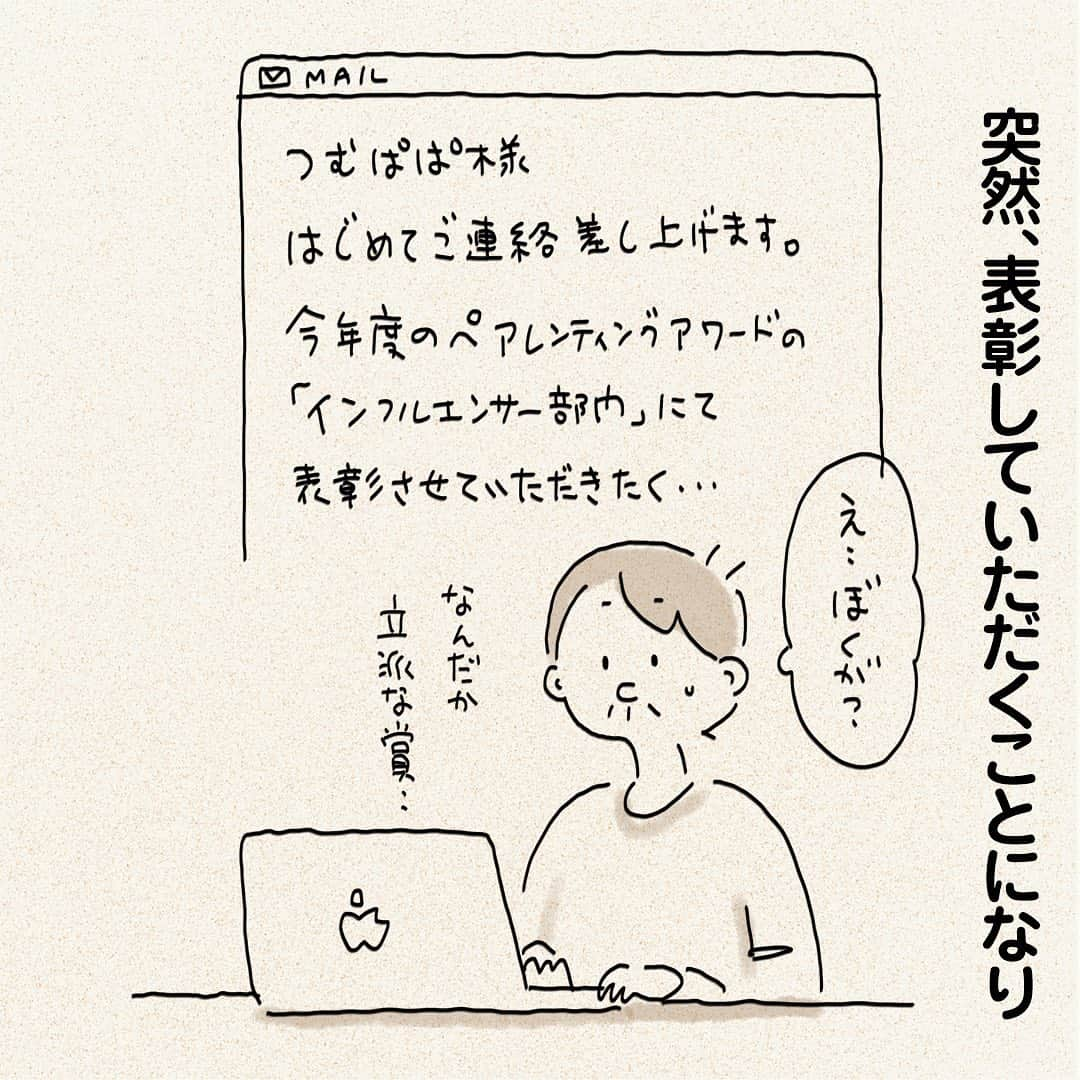 突然、表彰していただくことになり
MAIL
つむぱぱ様
はじめてご連絡差し上げます。
今年度のペアレンティングアワードの
「インフルエンサー部門」にて
表彰させていただきたく・・・
え…ぼくが?
なんだか
立派な賞…